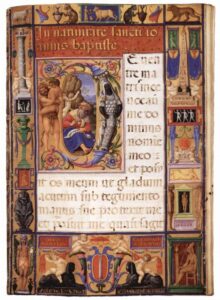 In natiuitate sancti io
annis baptiste
E uen
tre ma
tris mee
uocauit
me do
minus
nomine
meo et
posu
it os meum ut gladium
acutum sub tegumento
manus sue protexit me
et posuit me quasi sagit